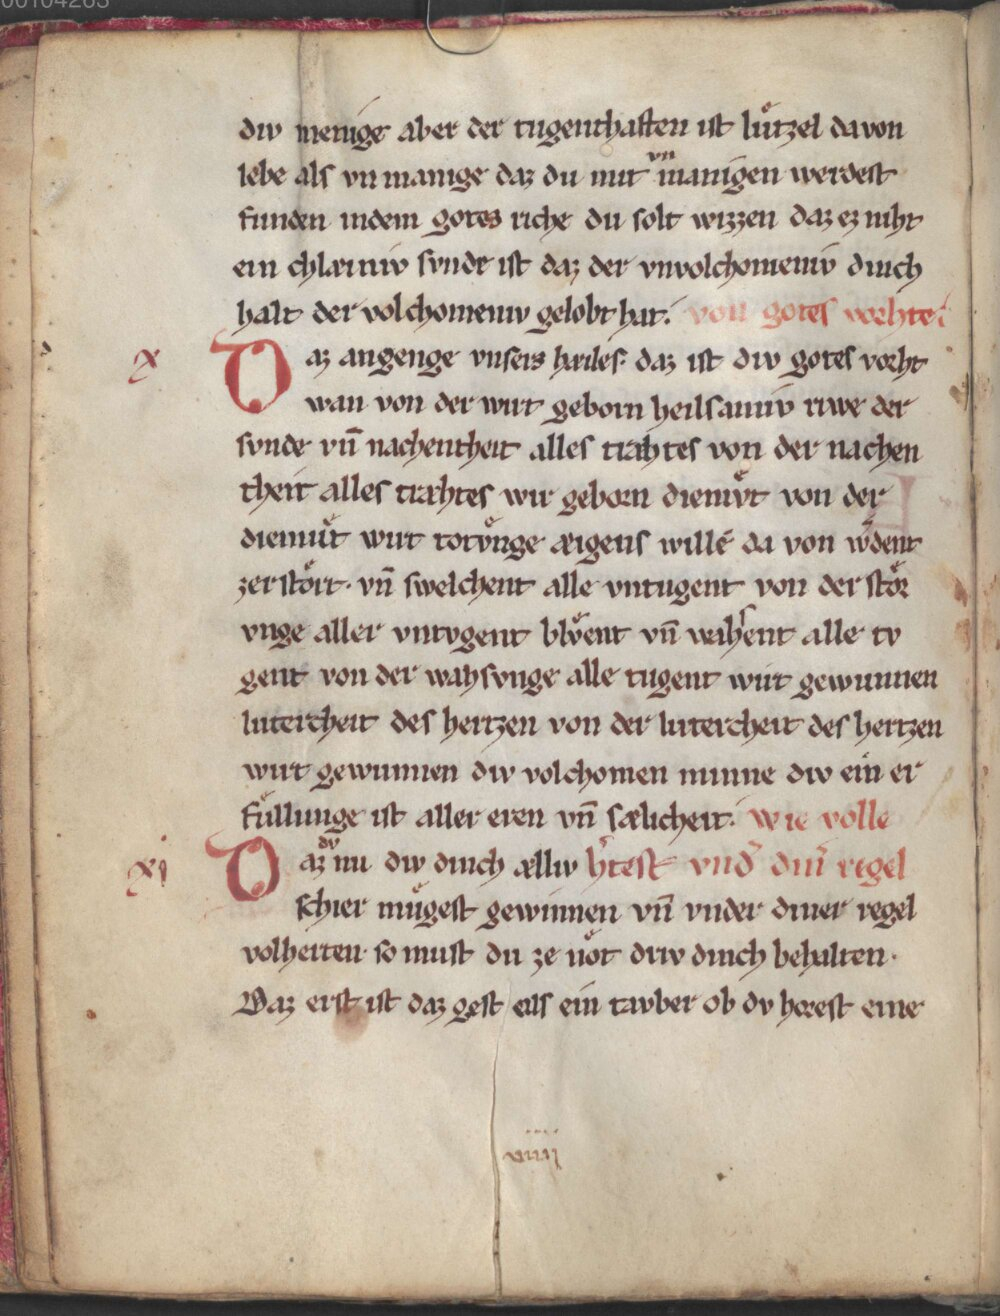 00104263
div menige aber der tugenthaften ist lützel davon
lebe als vn manige daz du mit vn manigen werdest
funden indem gotes riche du solt wizzen daz ez niht
ein chlæiniv svnde ist daz der vnvolchomeniv dinch
halt der volchomeniv gelobt hat. von gotes vorhte.
x Daz angenge vnsers hæiles. daz ist div gotes vorht
wan von der wirt geborn heilsamiv riwe der
svnde vn̄ nachentheit alles træhtes von der nachen
theit alles træhtes wir geborn diemvͤt von der
diemuͤt wirt totvͤnge æigens willē da von w̓dent
zerstoͤrt. vn̄ swelchent alle vntugent von der stoͤr
vnge aller vntvgent blvͤent vn̄ wahsent alle tv
gent von der wahsvnge alle tugent wirt gewunnen
lutercheit des hertzen von der lutercheit des hertzen
wirt gewunnen div volchomen minne div ein er
fuͤllunge ist aller eren vn̄ sælicheit. wie volle
xi Daz dv nu div dinch ælliv h̓test vnd̓ din̓ regel
schier muͤgest gewinnen vn̄ vnder diner regel
volherten. so must du ze noͤt driv dinch behalten.
Daz erst ist daz gest als ein tavber ob dv horest eine
viiii